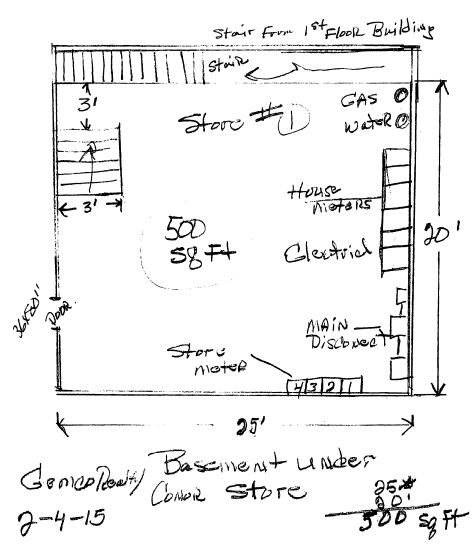 Stair From 1st Floor Building
Stair
3'
Store # 1
GAS
Water
House
meters
3'
500
sq Ft
Electrical
20'
36x80"
DOOR
MAIN
Disconect
Store
meter
4 3 2 1
25'
Gemco Realty
Basement under
Conor Store
2-4-15
25'
20'
500 sq Ft